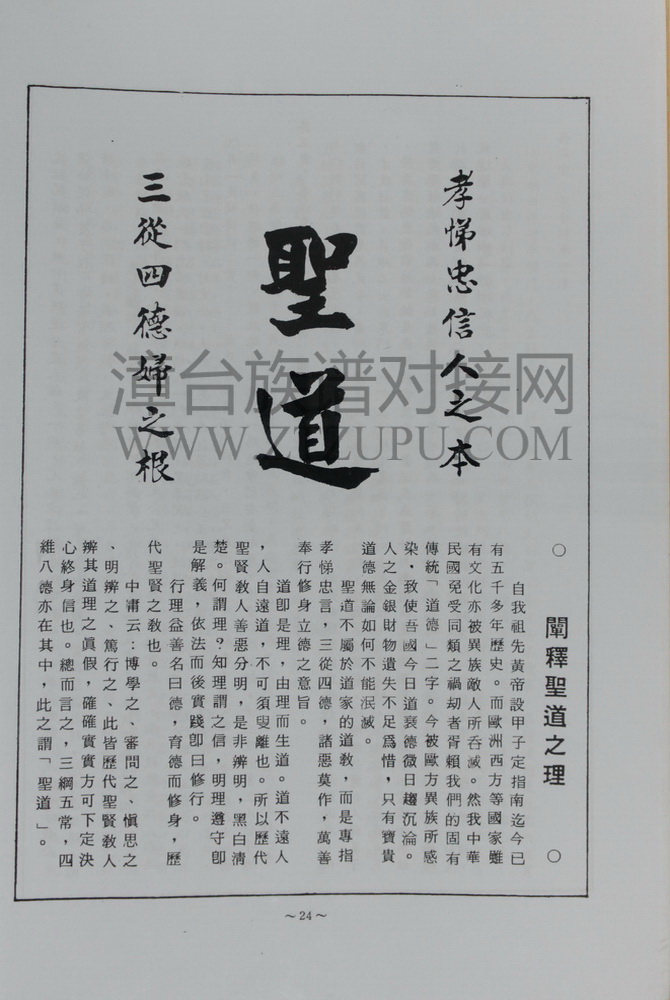 孝悌忠信人之本
聖道
三從四德婦之根
漳台族谱对接网
WWW.ZTZUPU.COM
○ 闡釋聖道之理 ○
自我祖先黃帝設甲子定指南迄今已
有五千多年歷史。而歐洲西方等國家雖
有文化亦被異族敵人所吞滅。然我中華
民國免受同類之禍刧者胥賴我們的固有
傳統「道德」二字。今被歐方異族所感
染，致使吾國今日道衰德微日趨沉淪。
人之金銀財物遺失不足爲惜，只有寶貴
道德無論如何不能泯滅。
聖道不屬於道家的道教，而是專指
孝悌忠言，三從四德，諸惡莫作，萬善
奉行修身立德之意旨。
道卽是理，由理而生道。道不遠人
，人自遠道，不可須臾離也。所以歷代
聖賢教人善惡分明，是非辨明，黑白清
楚。何謂理？知理謂之信，明理遵守卽
是解義，依法而後實踐卽曰修行。
行理益善名曰德，育德而修身，歷
代聖賢之教也。
中庸云：博學之、審問之、愼思之
、明辨之、篤行之、此皆歷代聖賢教人
辨其道理之眞假，確確實實方可下定決
心終身信也。總而言之，三綱五常，四
維八德亦在其中，此之謂「聖道」。
～24～